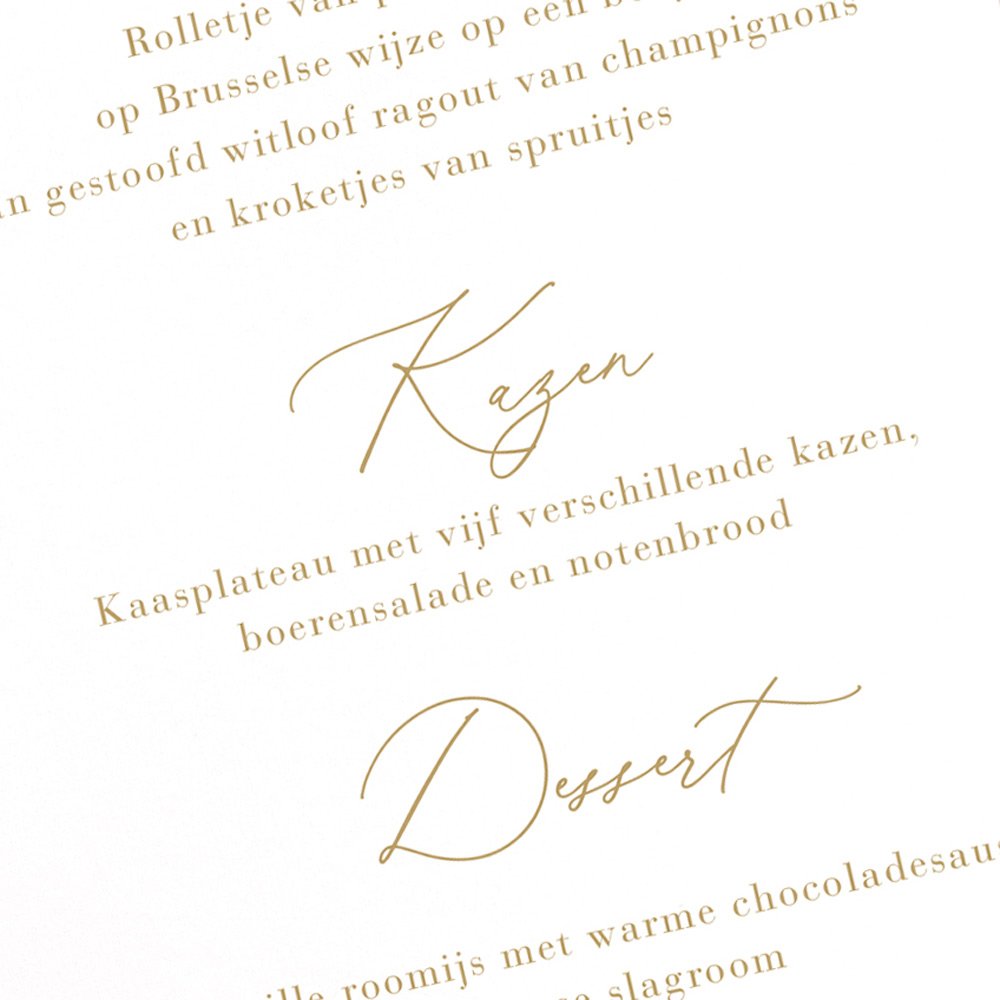 Rolletje van
op Brusselse wijze op een
gestoofd witloof ragout van champignons
en kroketjes van spruitjes
Kazen
Kaasplateau met vijf verschillende kazen,
boerensalade en notenbrood
Dessert
roomijs met warme chocoladesaus
slagroom